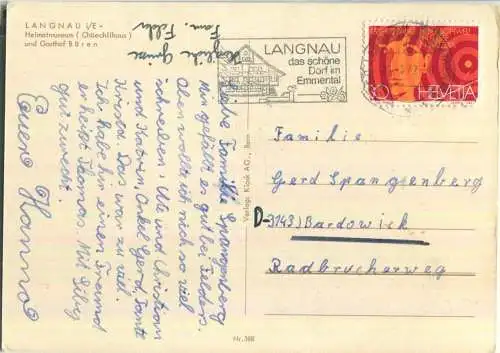 LANGNAU i/E -
Heimatmuseum (Chüechlihaus)
und Gasthof Bären
Herzliche Grüsse
Fam. Felder
LANGNAU
das schöne
Dorf im
Emmental
30 HELVETIA
Liebe Familie Spangenberg
Mir gefällt es gut bei Felders.
Aber wollt ich nicht so viel
schreiben: Ute und Christian
und Katrin, Onkel Gerd, Tante
Krista. Das war zu viel.
Ich habe hier einen Freund
er heißt Thomas. Mit Silvy
gut zurecht.
Euer Hanno
Verlag: Kiosk AG., Bern
Nr. 388
Familie
Gerd Spangenberg
D-3143) Bardowick
Radbrucherweg